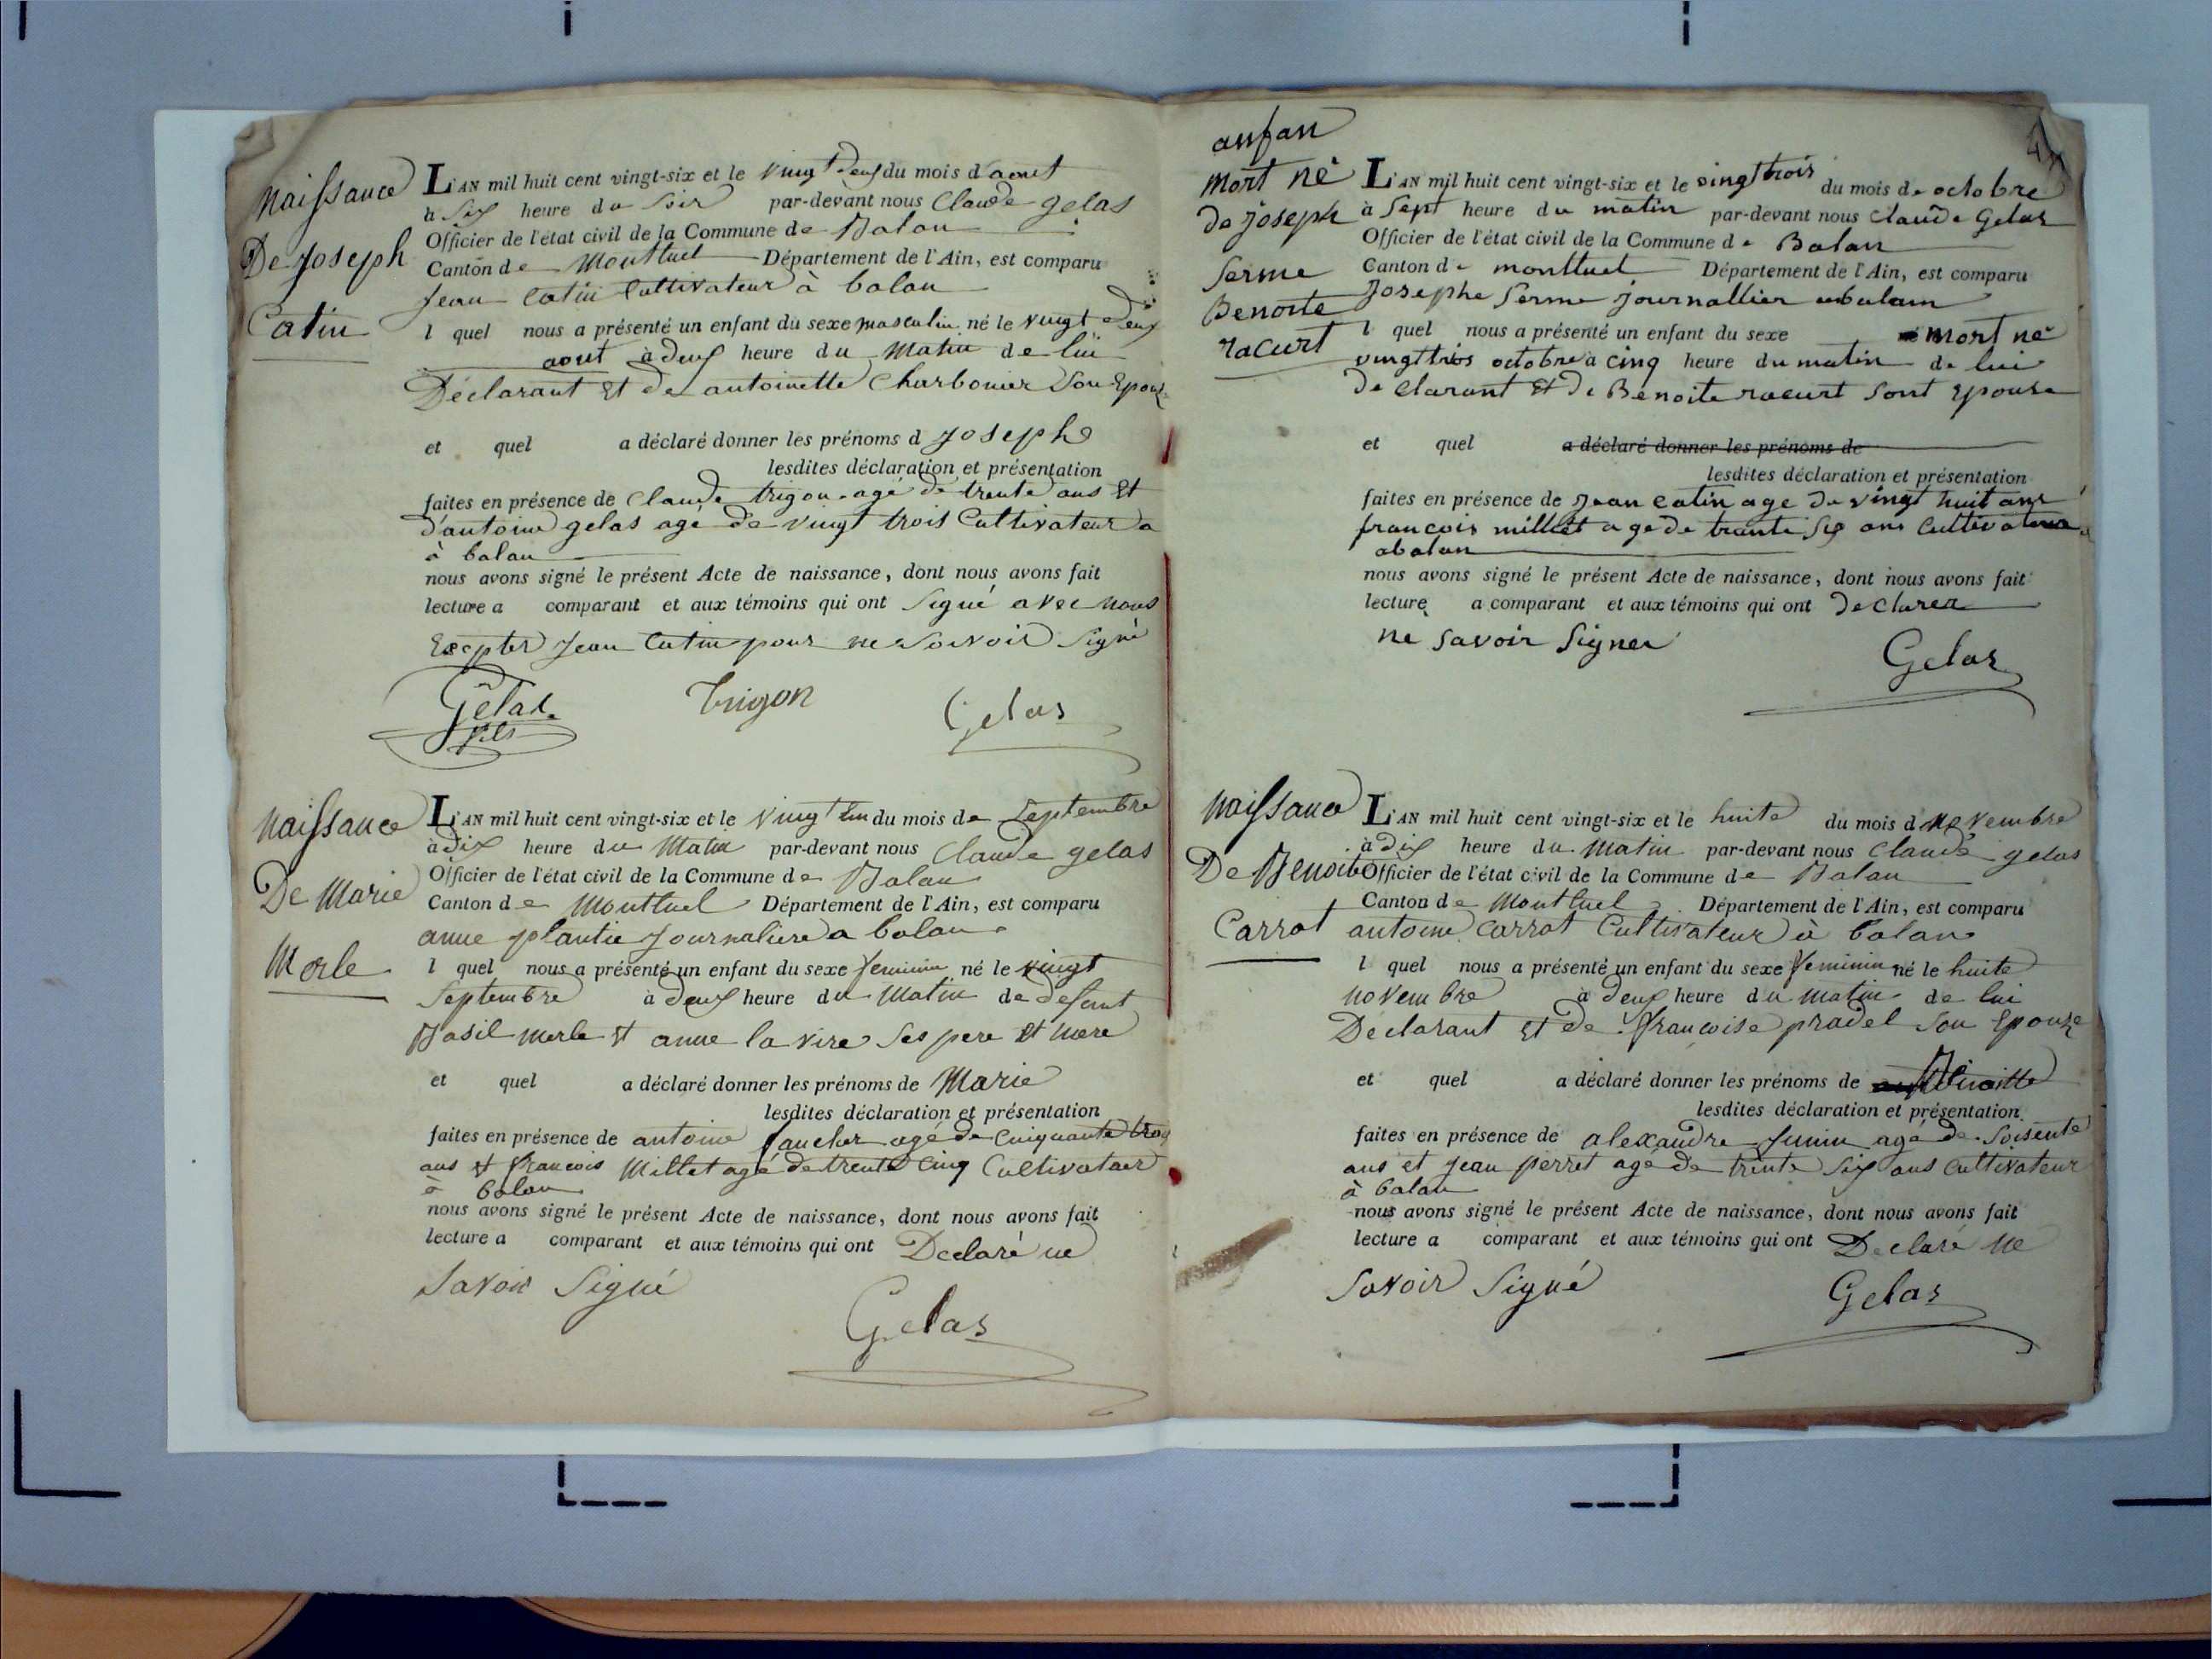 Naissance
De Joseph
Catin
L'AN mil huit cent vingt-six et le vingt deux du mois d'aout
à Six heure du Soir par-devant nous Claude gelas
Officier de l'état civil de la Commune de Balan
Canton de Montluel Département de l'Ain, est comparu
Jean Catin Cultivateur à balan
l quel nous a présenté un enfant du sexe masculin né le vingt deux
aout à deux heure du Matin de lui
Déclarant Et de antoinette Charbonier Son Epouze
et quel a déclaré donner les prénoms d Joseph
lesdites déclaration et présentation
faites en présence de Claude trigon agé de trente ans Et
d'antoine gelas agé de vingt trois Cultivateur a
à balan
nous avons signé le présent Acte de naissance, dont nous avons fait
lecture a comparant et aux témoins qui ont Signé avec nous
Excepter Jean Catin pour ne Savoir Signé
Gelas fils Trigon Gelas
Naissance
De Marie
Merle
L'AN mil huit cent vingt-six et le vingt un du mois de Septembre
à dix heure du Matin par-devant nous Claude gelas
Officier de l'état civil de la Commune de Balan
Canton de Montluel Département de l'Ain, est comparu
anne plantie Journaliere a balan
l quel nous a présenté un enfant du sexe feminin né le vingt
Septembre à deux heure du Matin de defunt
Basil merle Et anne la vire Ses pere Et mere
et quel a déclaré donner les prénoms de Marie
lesdites déclaration et présentation
faites en présence de antoine faucher agé de Cinquante trois
ans Et francois Millet agé de trente Cinq Cultivateur
à balan
nous avons signé le présent Acte de naissance, dont nous avons fait
lecture a comparant et aux témoins qui ont Declaré ne
Savoir Signé
Gelas
anfan
mort né
de joseph
Serme
Benoite
racurt
L'AN mil huit cent vingt-six et le vingt trois du mois de octobre
à Sept heure du matin par-devant nous claude Gelas
Officier de l'état civil de la Commune de Balan
Canton de montluel Département de l'Ain, est comparu
Josephe Serme journallier abalam
l quel nous a présenté un enfant du sexe mort né
vingttrois octobre à cinq heure du matin de lui
de clarant Et de Benoite racurt Sont Epouse
et quel a déclaré donner les prénoms de
lesdites déclaration et présentation
faites en présence de Jean catin age de vingt huit ans
francois millet age de trante six ans Cultivateur
abalan
nous avons signé le présent Acte de naissance, dont nous avons fait
lecture a comparant et aux témoins qui ont declarer
ne Savoir Signer
Gelas
Naissance
De Benoite
Carrot
L'AN mil huit cent vingt-six et le huite du mois d novembre
à dix heure du Matin par-devant nous Claude gelas
Officier de l'état civil de la Commune de Balan
Canton de Montluel Département de l'Ain, est comparu
antoine Carrot Cultivateur à balan
l quel nous a présenté un enfant du sexe feminin né le huite
novembre à deux heure du Matin de lui
Declarant Et de francoise pradel Son Epouze
et quel a déclaré donner les prénoms de Benoitte
lesdites déclaration et présentation
faites en présence de alexandre Junin agé de Soisente
ans et Jean perret agé de trente Six ans Cultivateur
à balan
nous avons signé le présent Acte de naissance, dont nous avons fait
lecture a comparant et aux témoins qui ont Declaré ne
Savoir Signé
Gelas